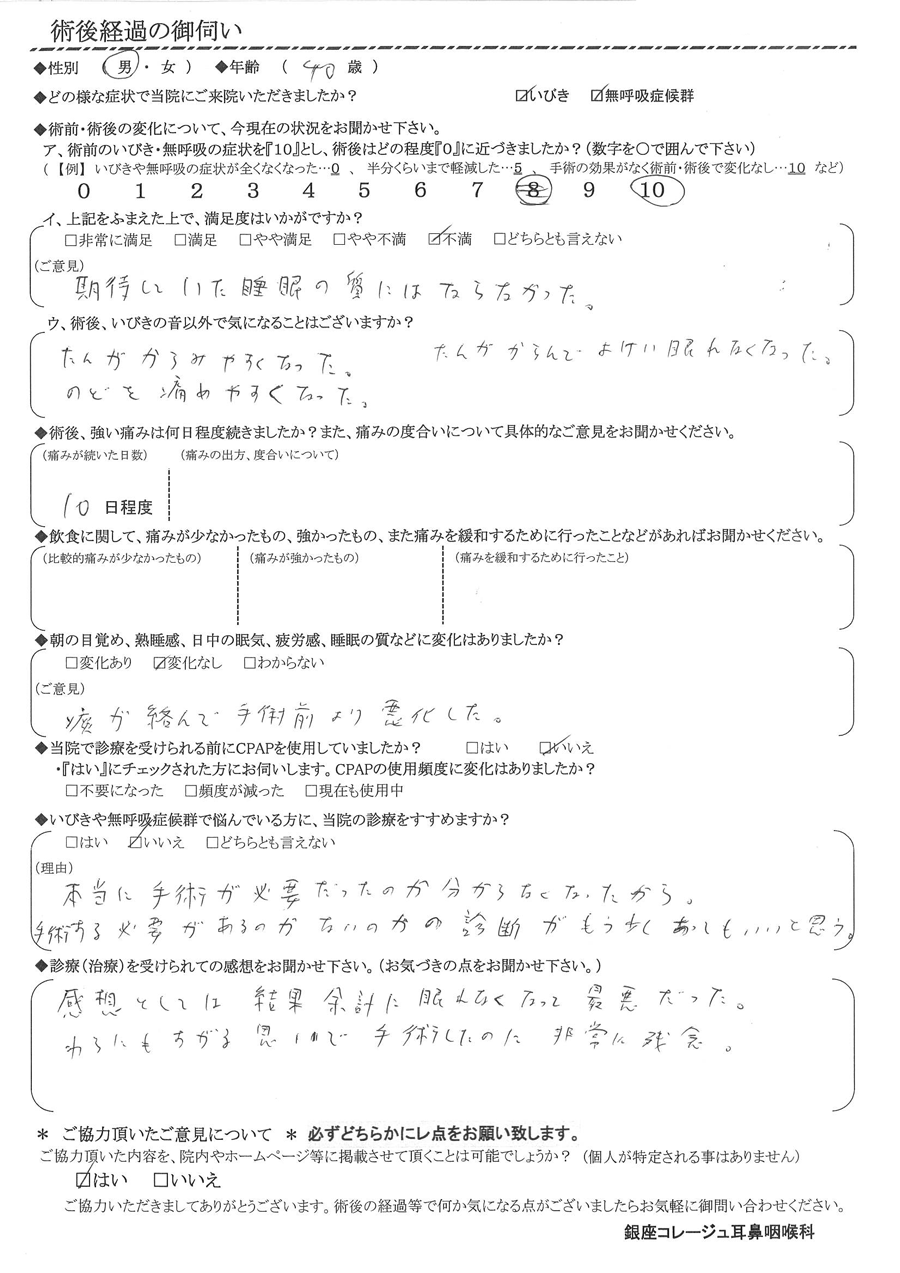 術後経過の御伺い
◆性別 (男・女) ◆年齢 (40歳)
◆どの様な症状で当院にご来院いただきましたか? ☑いびき ☑無呼吸症候群
◆術前・術後の変化について、今現在の状況をお聞かせ下さい。
ア、術前のいびき・無呼吸の症状を『10』とし、術後はどの程度『0』に近づきましたか?(数字を○で囲んで下さい)
(【例】いびきや無呼吸の症状が全くなくなった…0 、 半分くらいまで軽減した…5 、 手術の効果がなく術前・術後で変化なし…10 など)
0 1 2 3 4 5 6 7 8 9 10
イ、上記をふまえた上で、満足度はいかがですか?
□非常に満足 □満足 □やや満足 □やや不満 ☑不満 □どちらとも言えない
(ご意見)
期待していた睡眠の質にはならなかった。
ウ、術後、いびきの音以外で気になることはございますか?
たんがからみやすくなった。 たんがからんでよけい眠れなくなった。
のどを痛めやすくなった。
◆術後、強い痛みは何日程度続きましたか?また、痛みの度合いについて具体的なご意見をお聞かせください。
(痛みが続いた日数) (痛みの出方、度合いについて)
10日程度
◆飲食に関して、痛みが少なかったもの、強かったもの、また痛みを緩和するために行ったことなどがあればお聞かせください。
(比較的痛みが少なかったもの) (痛みが強かったもの) (痛みを緩和するために行ったこと)
◆朝の目覚め、熟睡感、日中の眠気、疲労感、睡眠の質などに変化はありましたか?
□変化あり ☑変化なし □わからない
(ご意見)
痰が絡んで手術前より悪化した。
◆当院で診療を受けられる前にCPAPを使用していましたか? □はい ☑いいえ
・『はい』にチェックされた方にお伺いします。CPAPの使用頻度に変化はありましたか?
□不要になった □頻度が減った □現在も使用中
◆いびきや無呼吸症候群で悩んでいる方に、当院の診療をすすめますか?
□はい ☑いいえ □どちらとも言えない
(理由)
本当に手術が必要だったのか分からなくなったから。
手術する必要があるのかないのかの診断がもう少しあってもいいと思う。
◆診療(治療)を受けられての感想をお聞かせ下さい。(お気づきの点をお聞かせ下さい。)
感想としては結果余計に眠れなくなって最悪だった。
わらにもすがる思いで手術したのに非常に残念。
＊ ご協力頂いたご意見について ＊ 必ずどちらかにレ点をお願い致します。
ご協力頂いた内容を、院内やホームページ等に掲載させて頂くことは可能でしょうか? (個人が特定される事はありません)
☑はい □いいえ
ご協力いただきましてありがとうございます。術後の経過等で何か気になる点がございましたらお気軽に御問い合わせください。
銀座コレージュ耳鼻咽喉科